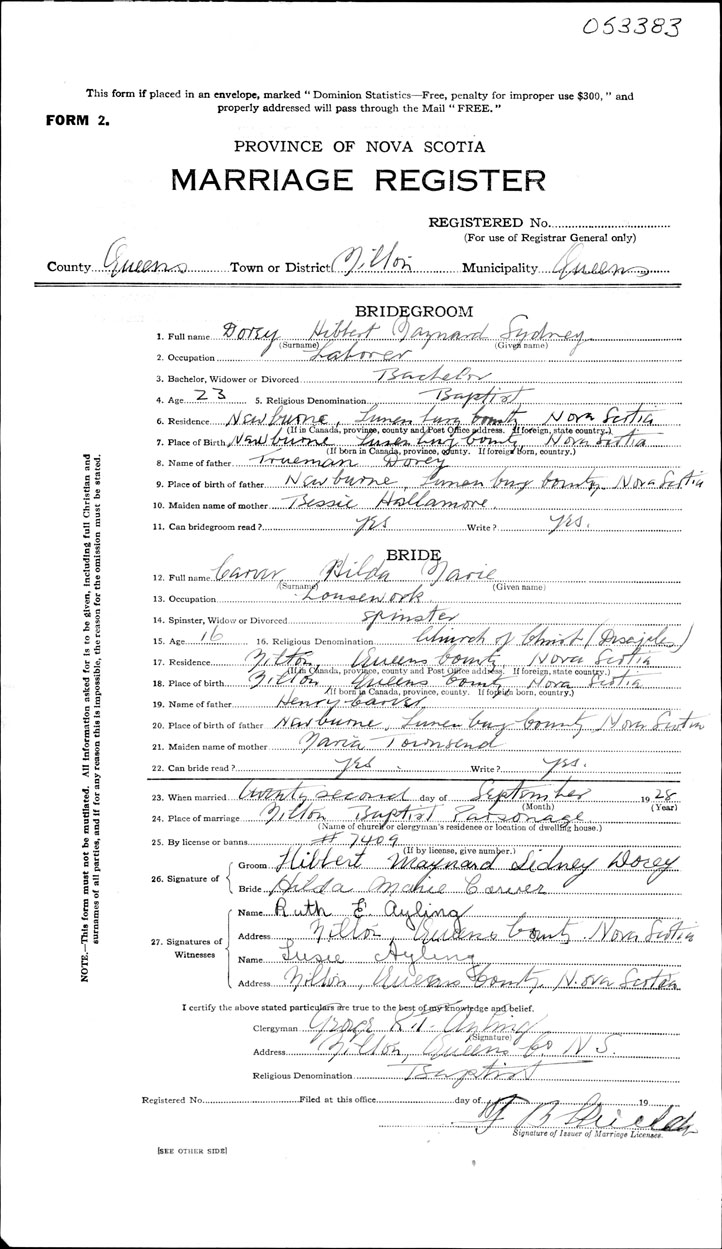 053383
This form if placed in an envelope, marked " Dominion Statistics—Free, penalty for improper use $300, " and
properly addressed will pass through the Mail " FREE. "
FORM 2.
PROVINCE OF NOVA SCOTIA
MARRIAGE REGISTER
REGISTERED No.
(For use of Registrar General only)
County Queens Town or District Milton Municipality Queens
BRIDEGROOM
1. Full name Dorey Hibbert Maynard Sydney
(Surname) (Given name)
2. Occupation Laborer
3. Bachelor, Widower or Divorced Bachelor
4. Age 23 5. Religious Denomination Baptist
6. Residence Newburne, Lunenburg County Nova Scotia
(If in Canada, province, county and Post Office address. If foreign, state country.)
7. Place of Birth Newburne Lunenburg County, Nova Scotia
(If born in Canada, province, county. If foreign Born, country.)
8. Name of father Trueman Dorey
9. Place of birth of father Newburne, Lunenburg County, Nova Scotia
10. Maiden name of mother Bessie Hallamore.
11. Can bridegroom read? yes Write? yes.
BRIDE
12. Full name Carver Hilda Marie
(Surname) (Given name)
13. Occupation Housework
14. Spinster, Widow or Divorced spinster
15. Age 16 16. Religious Denomination Church of Christ (Disciples)
17. Residence Milton, Queens County Nova Scotia
(If in Canada, province, county and Post Office address. If foreign, state country.)
18. Place of birth Milton Queens County Nova Scotia
(If born in Canada, province, county. If foreign born, country.)
19. Name of father Henry Carver
20. Place of birth of father Newburne, Lunenburg County Nova Scotia
21. Maiden name of mother Maria Townsend
22. Can bride read? yes. Write? yes.
23. When married twenty second day of September 1928
(Month) (Year)
24. Place of marriage Milton Baptist Parsonage
(Name of church or clergyman's residence or location of dwelling house.)
25. By license or banns # 7409
(If by license, give number.)
26. Signature of Groom Hibbert Maynard Sidney Dorey
Bride Hilda Marie Carver
27. Signatures of Witnesses
Name Ruth E. Ayling
Address Milton, Queens County, Nova Scotia
Name Susie Ayling
Address Milton, Queens County, Nova Scotia
I certify the above stated particulars are true to the best of my knowledge and belief.
Clergyman Ayling
(Signature)
Address Milton, Queens Co N.S.
Religious Denomination Baptist
Registered No. Filed at this office day of 19
Signature of Issuer of Marriage Licenses.
[SEE OTHER SIDE]
NOTE.—This form must not be mutilated. All information asked for is to be given, including full Christian and
surnames of all parties, and if for any reason this is impossible, the reason for the omission must be stated.